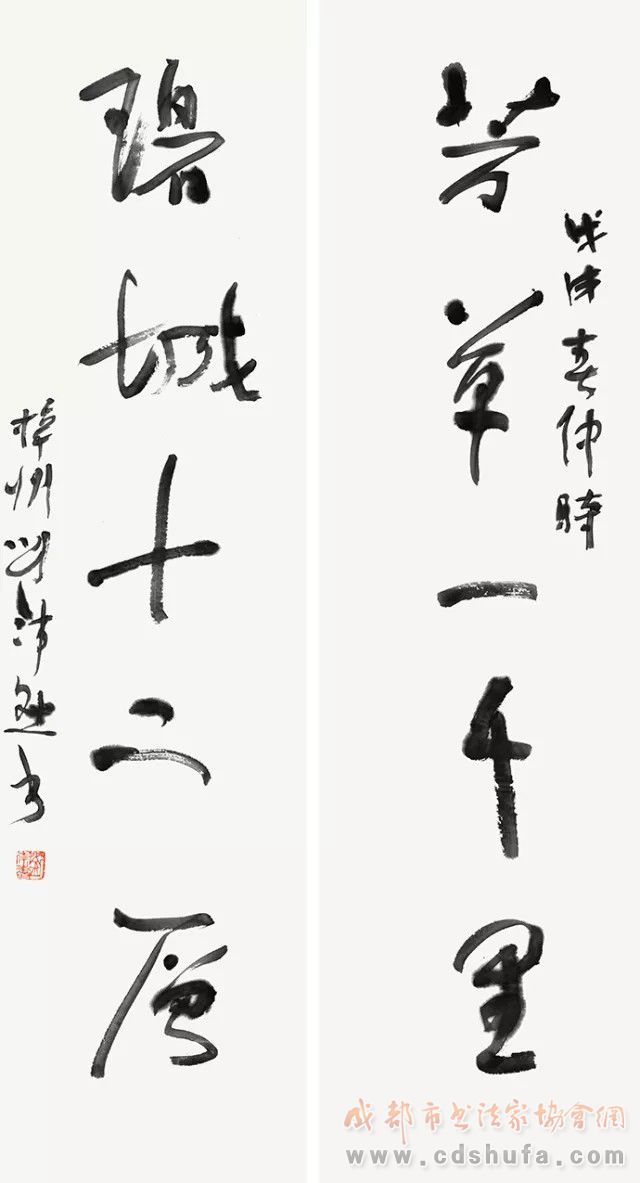 芳草一千里
戊戌春仲時
碧城十二層
梓州劉沛
書
成都市书法家協會網
www.cdshufa.com